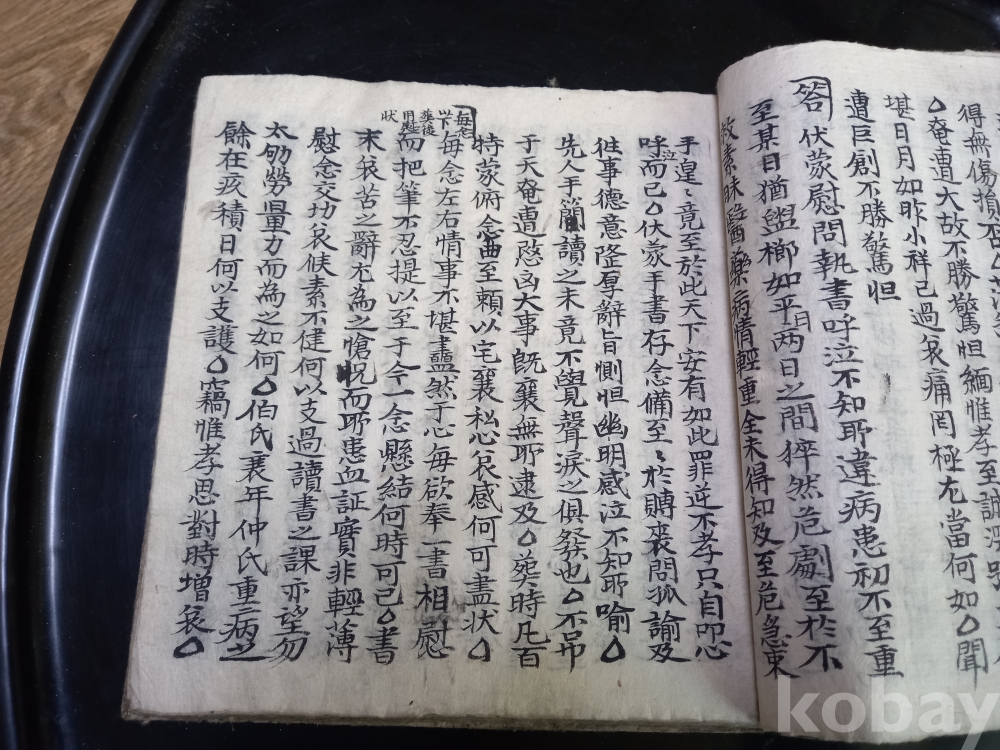 得無傷損否
○奄遭大故不勝驚怛緬惟孝至
堪日月如昨小祥已過哀痛罔極尤當何如○聞
遭巨創不勝驚怛
答 伏蒙慰問執書呼泣不知所違病患初不至重
至某日猶盥櫛如平日兩日之間猝然危劇至於不
救素昧醫藥病情輕重全未得知及至危急束
手皇〻竟至於此天下安有如此罪逆不孝只自叩心
呼泣而已○伏蒙手書存念備至〻於賻襚問狐諭及
徃事德意隆厚辭旨惻怛幽明感泣不知所喻○
先人手簡讀之未竟不覺聲淚之俱發也○不吊
于天奄遭愍凶大事旣襄無所逮及○葬時凡百
特蒙俯念曲至賴以完襄私心哀感何可盡狀○
每念左右情事不堪盡然于心每欲奉一書相慰
而把筆不忍提以至于今一念懸結何時可已○書
末哀苦之辭尤為之愴怳而所患血証實非輕薄
慰念交切哀候素不健何以支過讀書之課亦望勿
太劬勞量力而為之如何○伯氏襄年仲氏重病之
餘在疚積日何以支護○竊惟孝思對時增哀○
以下
葬後
用慰
狀
kobay